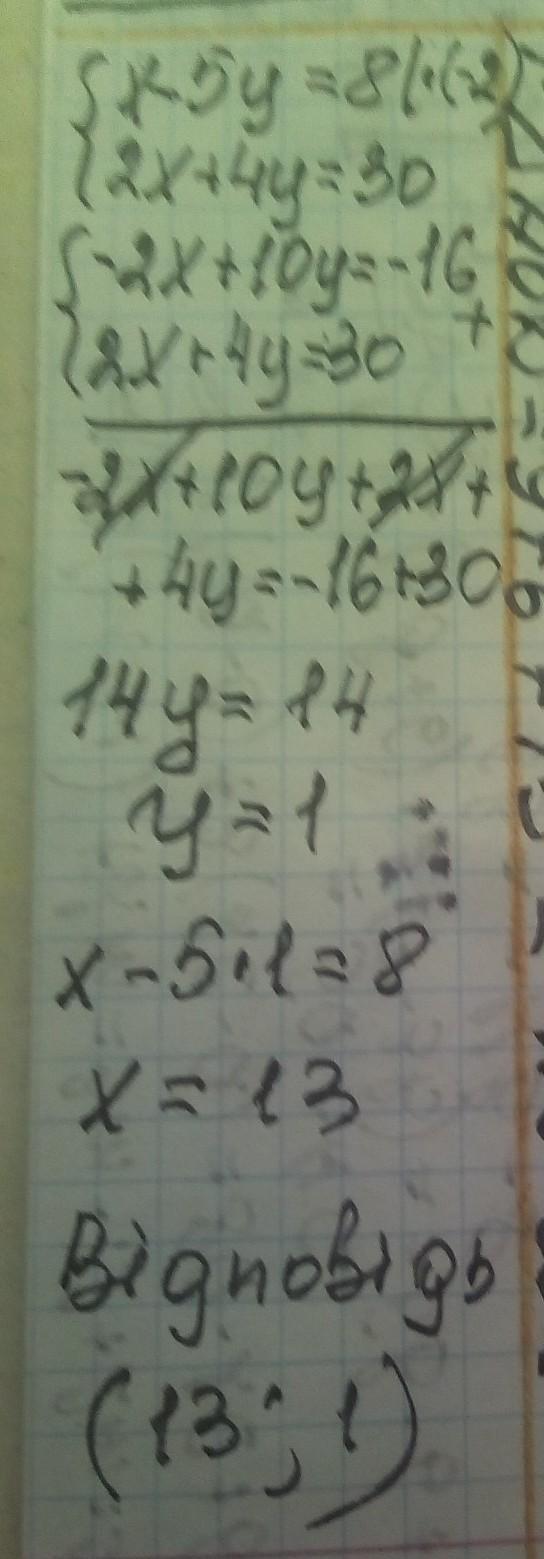 { x-5y=8|·(-2)
2x+4y=30
{ -2x+10y=-16
+
2x+4y=30
-2x+10y+2x+
+4y=-16+30
14y=14
y=1
x-5·1=8
x=13
Відповідь
(13; 1)